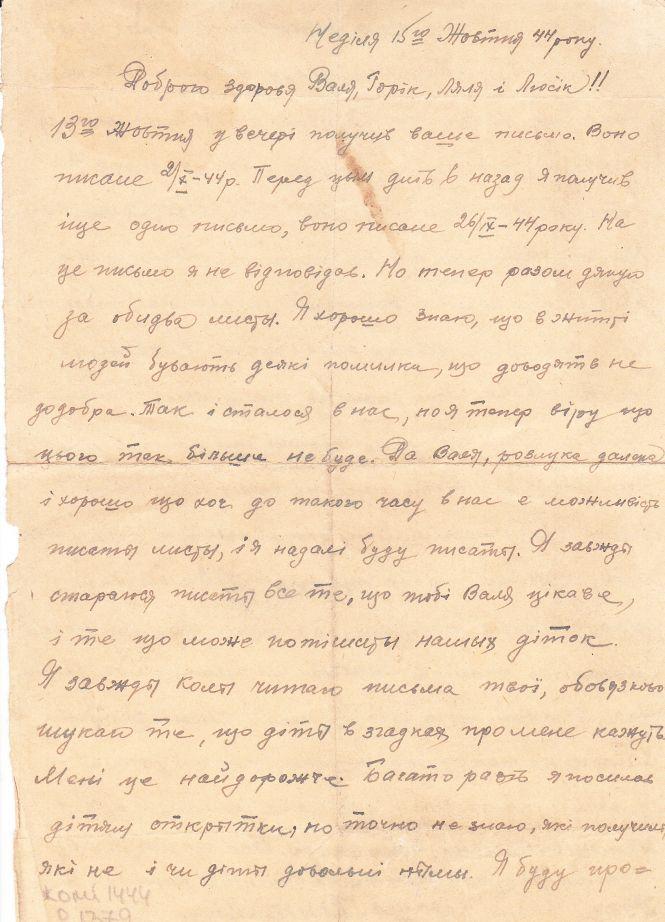 Неділя 15го Жовтня 44 року.
Доброго здоровя Валя, Горік, Ляля і Люсік!!
13го Жовтня у вечері получив ваше письмо. Воно
писане 2/X-44р. Перед цим днів 6 назад я получив
іще одно письмо, воно писане 26/IX-44 року. На
це письмо я не відповідав. Но тепер разом дякую
за обидва листы. Я хорошо знаю, що в житті
людей бувають деякі помилки, що доводять не
додобра. Так і сталося в нас, но я тепер вірю що
цього так більше не буде. Да Валя, розлука далека
і хорошо що хоч до такого часу в нас є можливість
писаты листы, і я надалі буду писаты. Я завжды
стараюся писаты все те, що тобі Валя цікаве,
і те що може потішиты нашых діток.
Я завжды колы читаю письма твої, обовязково
шукаю те, що діты в згадках про мене кажуть.
Мені це найдорожче. Багато разів я посилав
дітям открытки, но точно не знаю, які получили,
які не і чи діты довольні нымы. Я буду про=
КОМП 1444